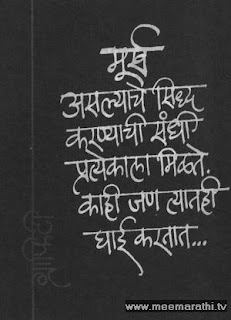 मूर्ख
असल्याचे सिध्द
करण्याची संधी
प्रत्येकाला मिळते.
काही जण त्यातही
घाई करतात...
ग्राफिटी
www.meemarathi.tv